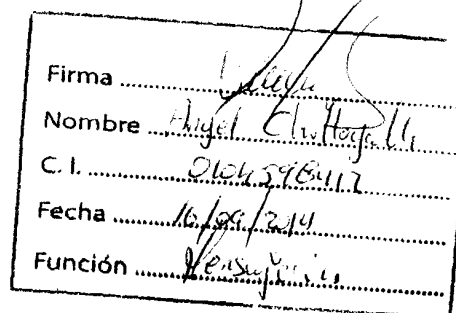 Firma
Nombre Angel
C. I. 0104598412
Fecha 16/09/2014
Función Mensajería